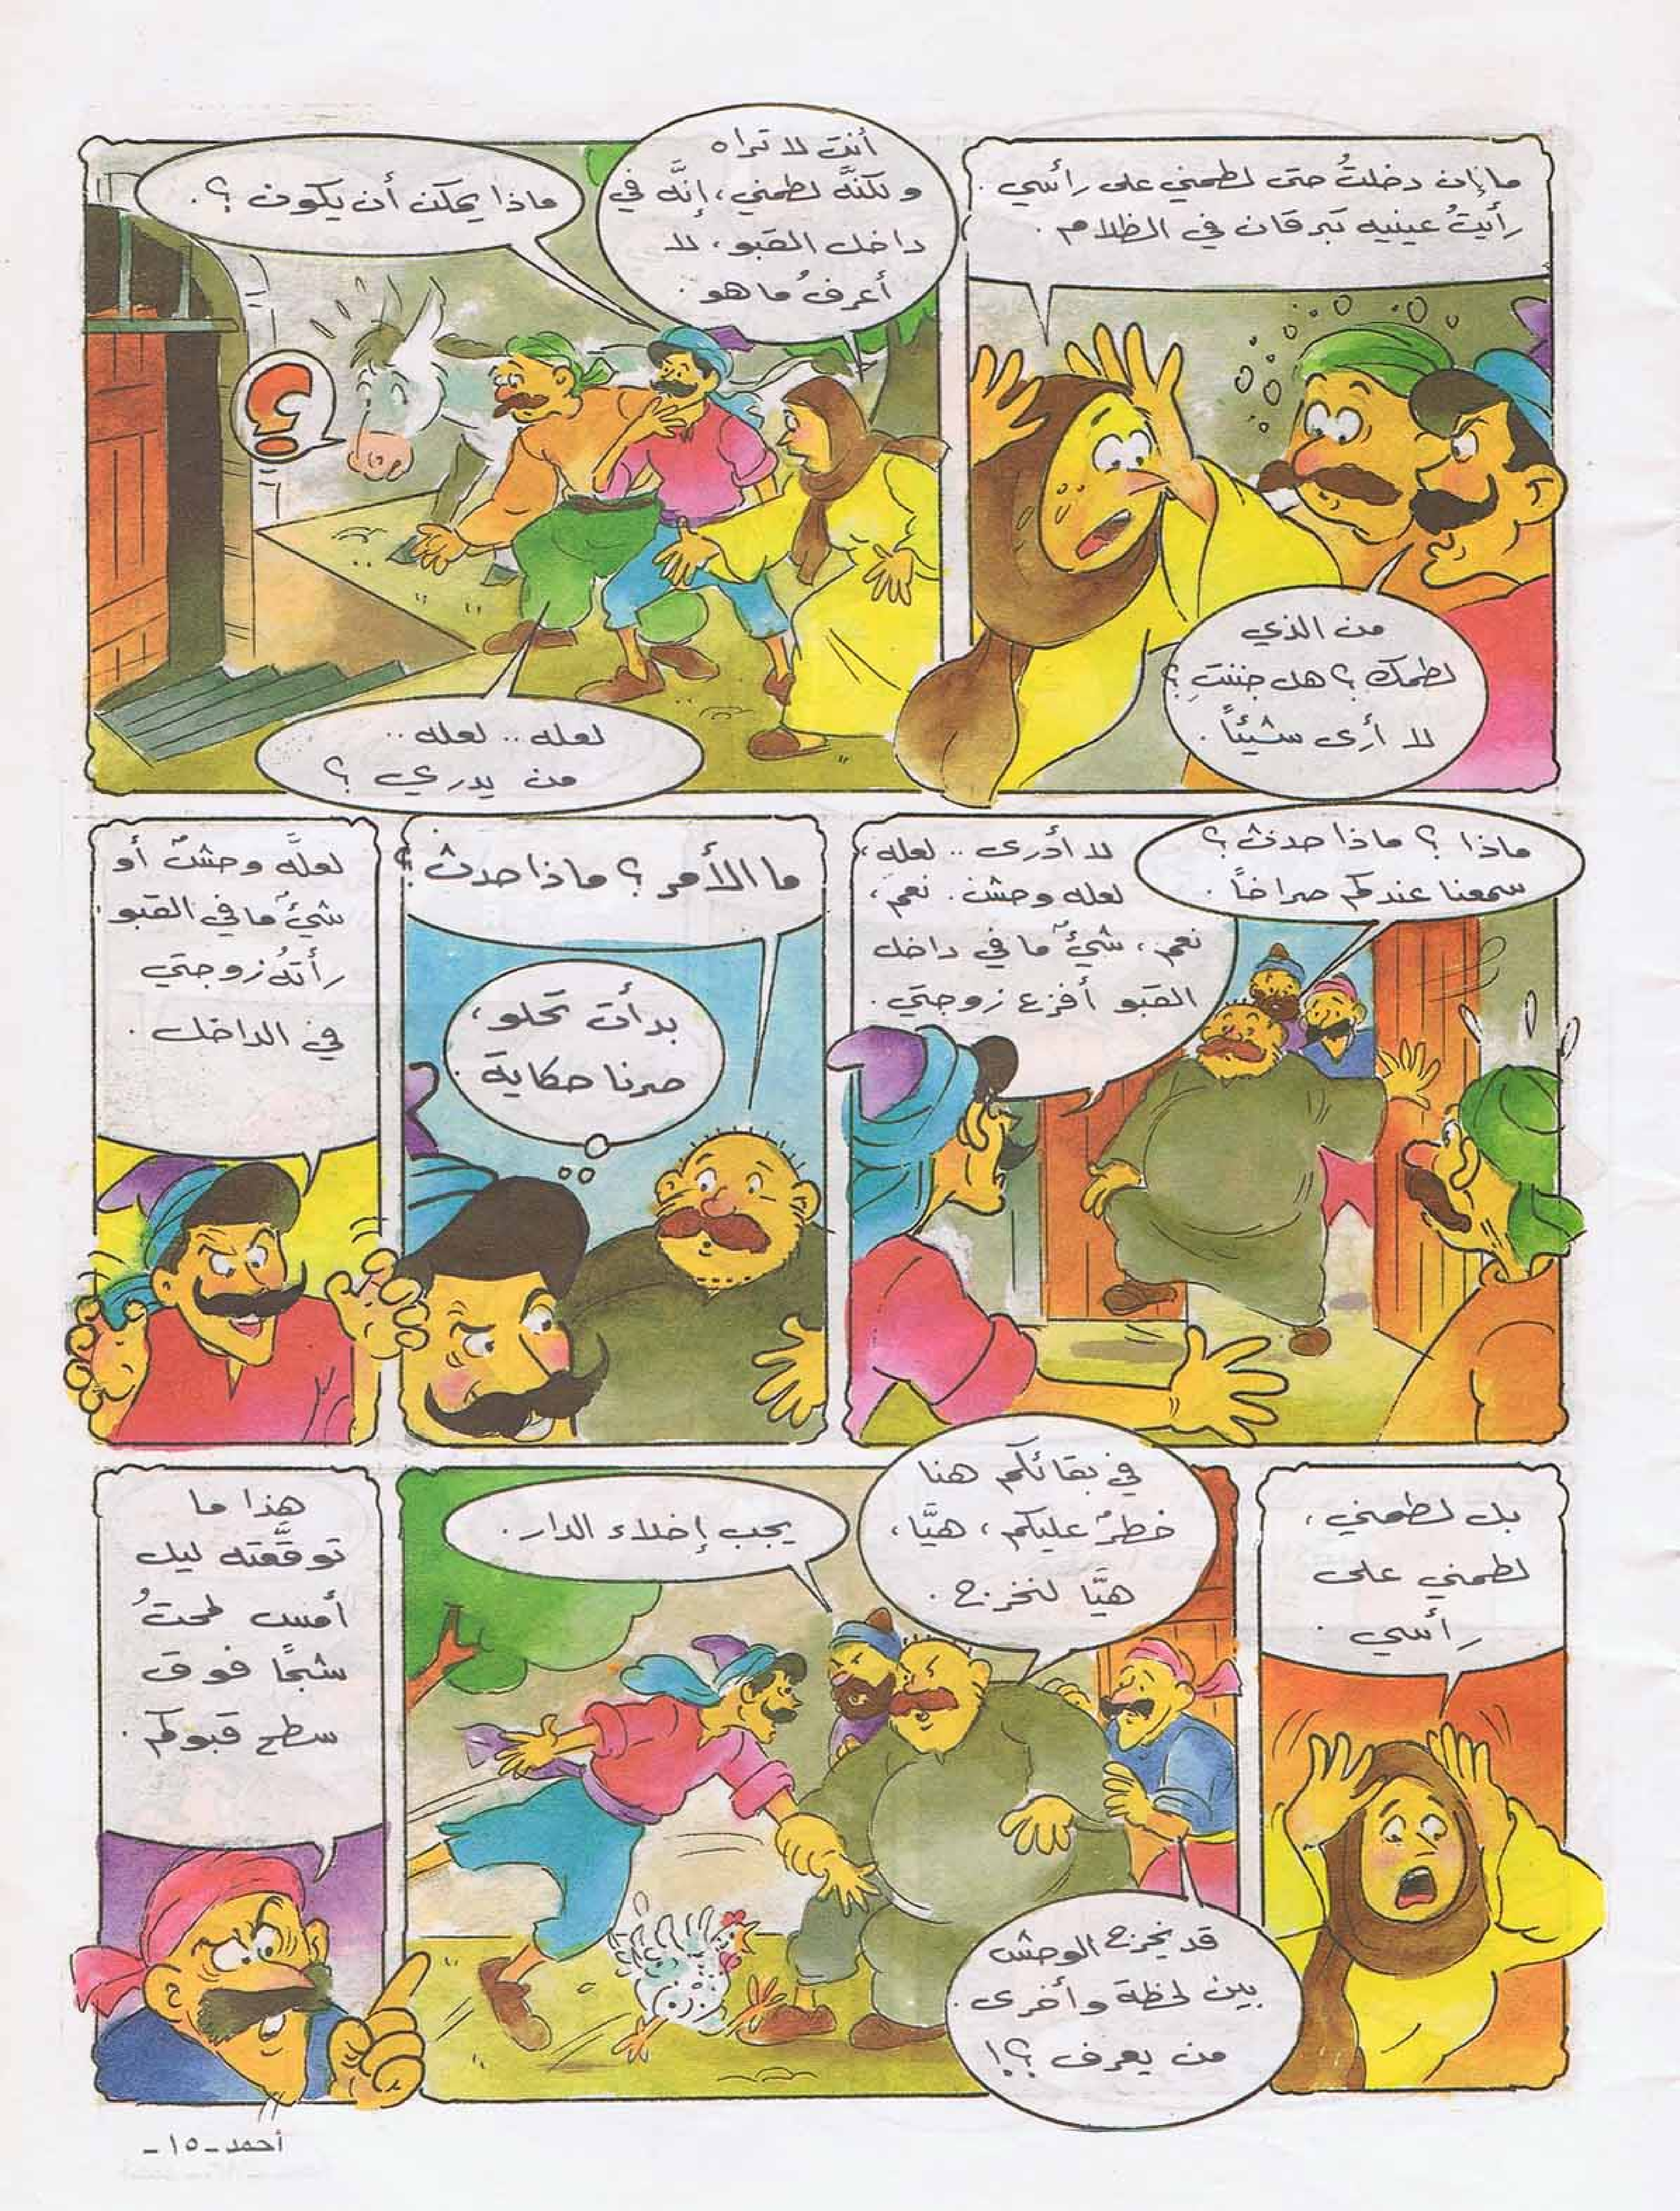 ما إن دخلتُ حتى لطمني على رأسي.
رأيتُ عينيه تبرقان في الظلام.
من الذي
لطمك؟ هل جننتِ؟
لا أرى شيئاً.
أنت لا تراه
ولكنَّه لطمني، إنَّه في
داخل القبو، لا
أعرفُ ما هو.
ماذا يمكن أن يكون؟.
لعله.. لعله..
من يدري؟
ماذا؟ ماذا حدث؟
سمعنا عندكم صراخاً.
لا أدرى.. لعله،
لعله وحش. نعم،
نعم، شيءٌ ما في داخل
القبو أفزع زوجتي.
ما الأمر؟ ماذا حدث؟
بدأت تحلو،
صرنا حكاية.
لعلَّه وحشٌ أو
شيءٌ ما في القبو
رأتهُ زوجتي
في الداخل.
بل لطمني،
لطمني على
رأسي.
في بقائكم هنا
خطرٌ عليكم، هيَّا،
هيَّا لنخرج.
يجب إخلاء الدار.
قد يخرج الوحش
بين لحظة وأخرى.
من يعرف؟!
هذا ما
توقَّعته ليل
أمس لمحتُ
شبحًا فوق
سطح قبوكم.
أحمد-١٥-
؟!